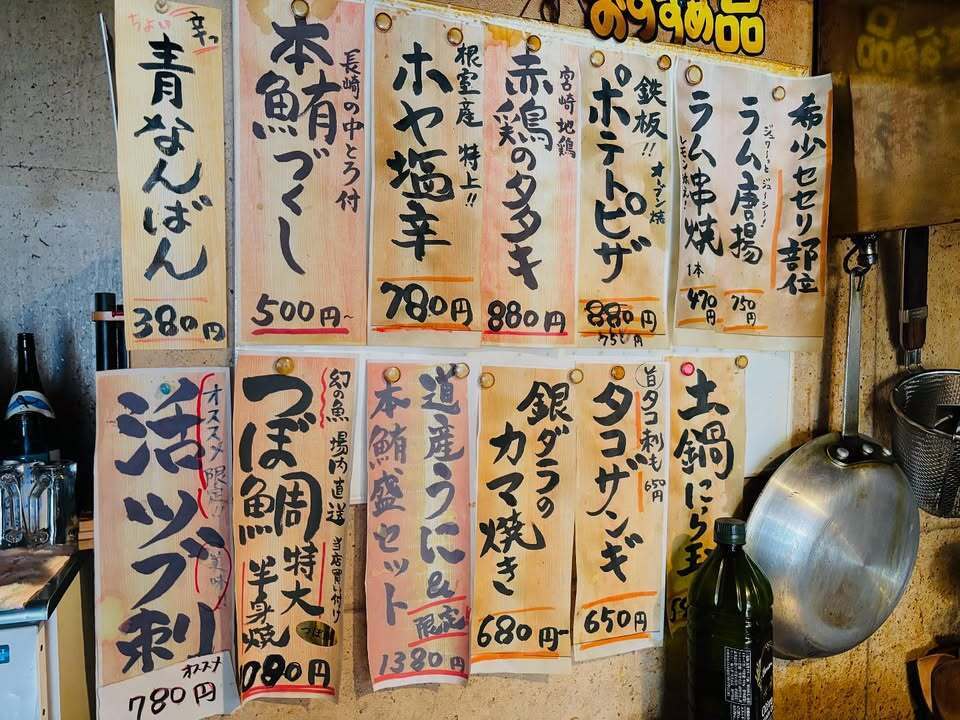 おすすめ品
希少セセリ部位
ラム唐揚
ジュワーッとジューシー!
750円
ラム串焼
1本
470円
鉄板!!
オーブン焼
ポテトピザ
880円
750円
宮崎地鶏
赤鶏のタタキ
880円
根室産 特上!!
ホヤ塩辛
780円
長崎の中とろ付
本鮪づくし
500円~
ちょい
辛っ
青なんばん
380円
土鍋にら玉
旨タコ刺も
650円
タコザンギ
650円
銀ダラの
カマ焼き
680円~
道産うに&
本鮪盛セット
限定
1380円
幻の魚 場内直送
当店買い付け
つぼ鯛 特大
半身焼
つぼ
1080円
オススメ限定!!
美味
活ツブ刺
オススメ
780円